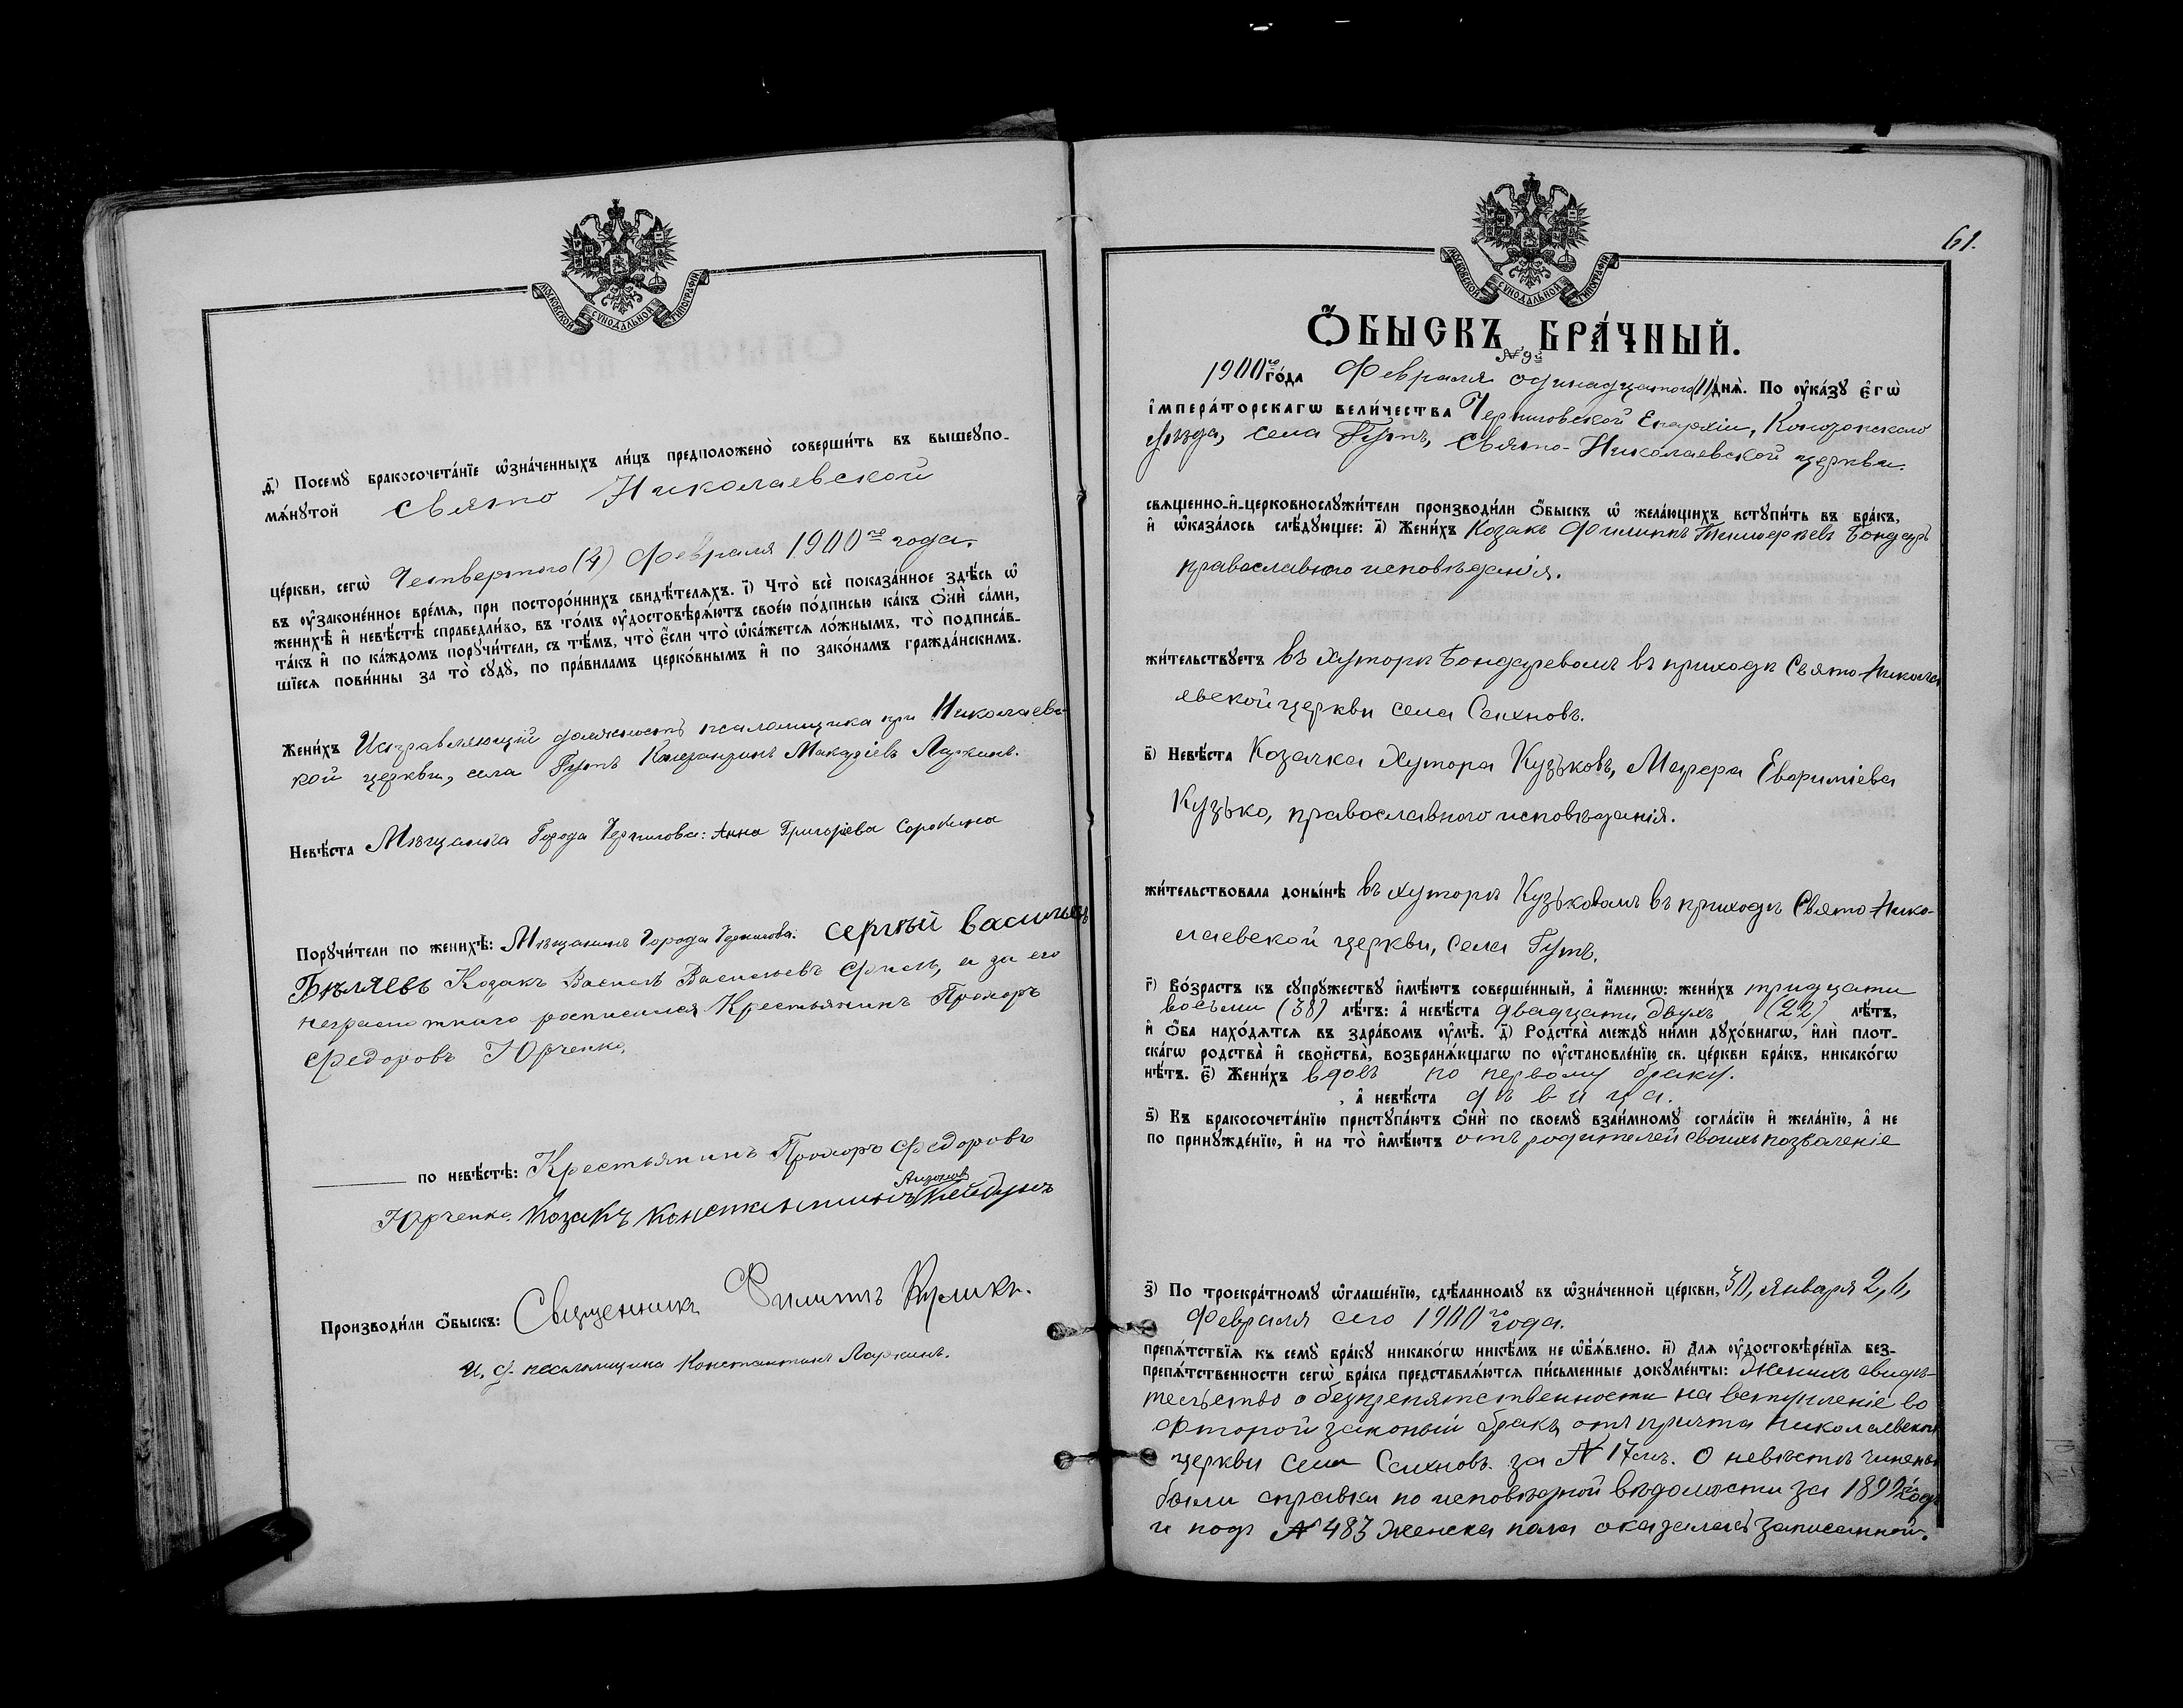 МОСКОВСКОЙ СѴНОДАЛЬНОЙ ТИПОГРАФІИ
д҃) Посемꙋ̀ бракосочета́нїе ѡ҆зна́ченныхъ ли́цъ предположено̀ соверши́ть въ вышеꙋпо-
мѧ́нꙋтой Свято Николаевской
це́ркви, сегѡ̀ Четвертого (4) Февраля 1900го года.
въ ᲂу҆зако́ненное вре́мѧ, при посторо́ннихъ свидѣ́телѧхъ. і҃) Что̀ всѐ пока́занное здѣ́сь ѡ҆
женихѣ̀ и҆ невѣ́стѣ справедли́во, въ то́мъ ᲂу҆достовѣрѧ́ютъ свое́ю по́дписью ка́къ ѻ҆нѝ са́ми,
та́къ и҆ по ка́ждомъ порꙋчи́тели, съ тѣ́мъ, что̀ є҆́сли что̀ ѡ҆ка́жетсѧ ло́жнымъ, то̀ подписа́в-
шїесѧ пови́нны за то̀ сꙋдꙋ̀, по пра́виламъ церко́внымъ и҆ по зако́намъ гражда́нскимъ.
Жени́хъ Исправляющий должность псаломщика при Николаевс-
кой церкви, села Гутъ Макаріевъ Ларкинъ.
Невѣ́ста Мѣщанка Города Чернигова: Анна Григоріева Сорокина
Порꙋчи́тели по женихѣ̀: Мѣщанинъ Города Чернигова: Сергѣй Васильевъ
Бѣляевъ Козакъ Васильевъ а за его
неграмотнаго росписался Крестьянинъ Прохоръ
Федоровъ Юрченко.
по невѣ́стѣ: Крестьянинъ Прохоръ Федоровъ
Юрченко. Козакъ Константинъ
Производи́ли ѻ҆́быскъ: Священникъ Филиппъ Куликъ.
и. д. псаломщика Константинъ Ларкинъ.
61.
МОСКОВСКОЙ СѴНОДАЛЬНОЙ ТИПОГРАФІИ
Ѻ҆́БЫСКЪ БРА́ЧНЫЙ.
№ 9й
1900го го́да Февраля одинадцатого (11) днѧ̀. По ᲂу҆ка́зꙋ є҆гѡ̀
і҆мпера́торскагѡ вели́чества Черниговской Епархіи, Конотопского
уѣзда, села Гутъ, Свято-Николаевской церкви.
свѧщенно-и҆-церковнослꙋжи́тели производи́ли ѻ҆́быскъ ѡ҆ жела́ющихъ встꙋпи́ть въ бра́къ,
и҆ ѡ҆каза́лось слѣ́дꙋющее: а҃) Жени́хъ Козакъ Филиппъ Тимофеевъ Бондарь
православного исповѣданія.
жи́тельствꙋетъ въ хуторѣ Бондаревомъ въ приходѣ Свято-Никола
евской церкви села Сахновъ.
в҃) Невѣ́ста Козачка Хутора Кузьковъ, Евфиміева
Кузько, православного исповѣданія.
жи́тельствовала доны́нѣ въ хуторѣ Кузьковомъ въ приходѣ Свято-Нико-
лаевской церкви, села Гутъ.
г҃) Во́зрастъ къ сꙋпрꙋ́жествꙋ и҆мѣ́ютъ соверше́нный, а҆ и҆́меннѡ: жени́хъ тридцати
восьми (38) лѣ́тъ: а҆ невѣ́ста двадцати двухъ (22) лѣ́тъ,
и҆ ѻ҆́ба нахо́дѧтсѧ въ здра́вомъ ᲂу҆мѣ̀. д҃) Родства̀ междꙋ̀ ни́ми дꙋхо́внагѡ, и҆лѝ плот-
ска́гѡ родства̀ и҆ сво́йства, возбранѧ́ющагѡ по ᲂу҆становле́нїю св. це́ркви бра́къ, никако́гѡ
нѣ́тъ. є҃) Жени́хъ вдовъ по первому браку.
, а҆ невѣ́ста дѣвица.
ѕ҃) Къ бракосочета́нїю пристꙋпа́ютъ ѻ҆нѝ по своемꙋ̀ взаи́мномꙋ согла́сїю и҆ жела́нїю, а҆ не
по принꙋжде́нїю, и҆ на то̀ и҆мѣ́ютъ отъ родителей своихъ позволеніе
з҃) По троекра́тномꙋ ѡ҆глаше́нїю, сдѣ́ланномꙋ въ ѡ҆зна́ченной це́ркви, 30, января 2, 6,
Февраля сего 1900го года.
препѧ́тствїѧ къ семꙋ̀ бра́кꙋ никако́гѡ никѣ́мъ не ѡ҆б̾ѧ́влено. и҃) Длѧ ᲂу҆достовѣре́нїѧ без-
препѧ́тственности сегѡ̀ бра́ка представлѧ́ютсѧ пи́сьменные докꙋме́нты: Женихъ свидѣ-
тельство о безпрепятственности на вступленіе во
фторой законый бракъ отъ причта Николаевской
церкви села Сахновъ за № 17мъ. О невѣстѣ чинены
были справки по исповѣдной вѣдомости за 1899 годъ
и подъ № 483 женска пола оказалась записанной.